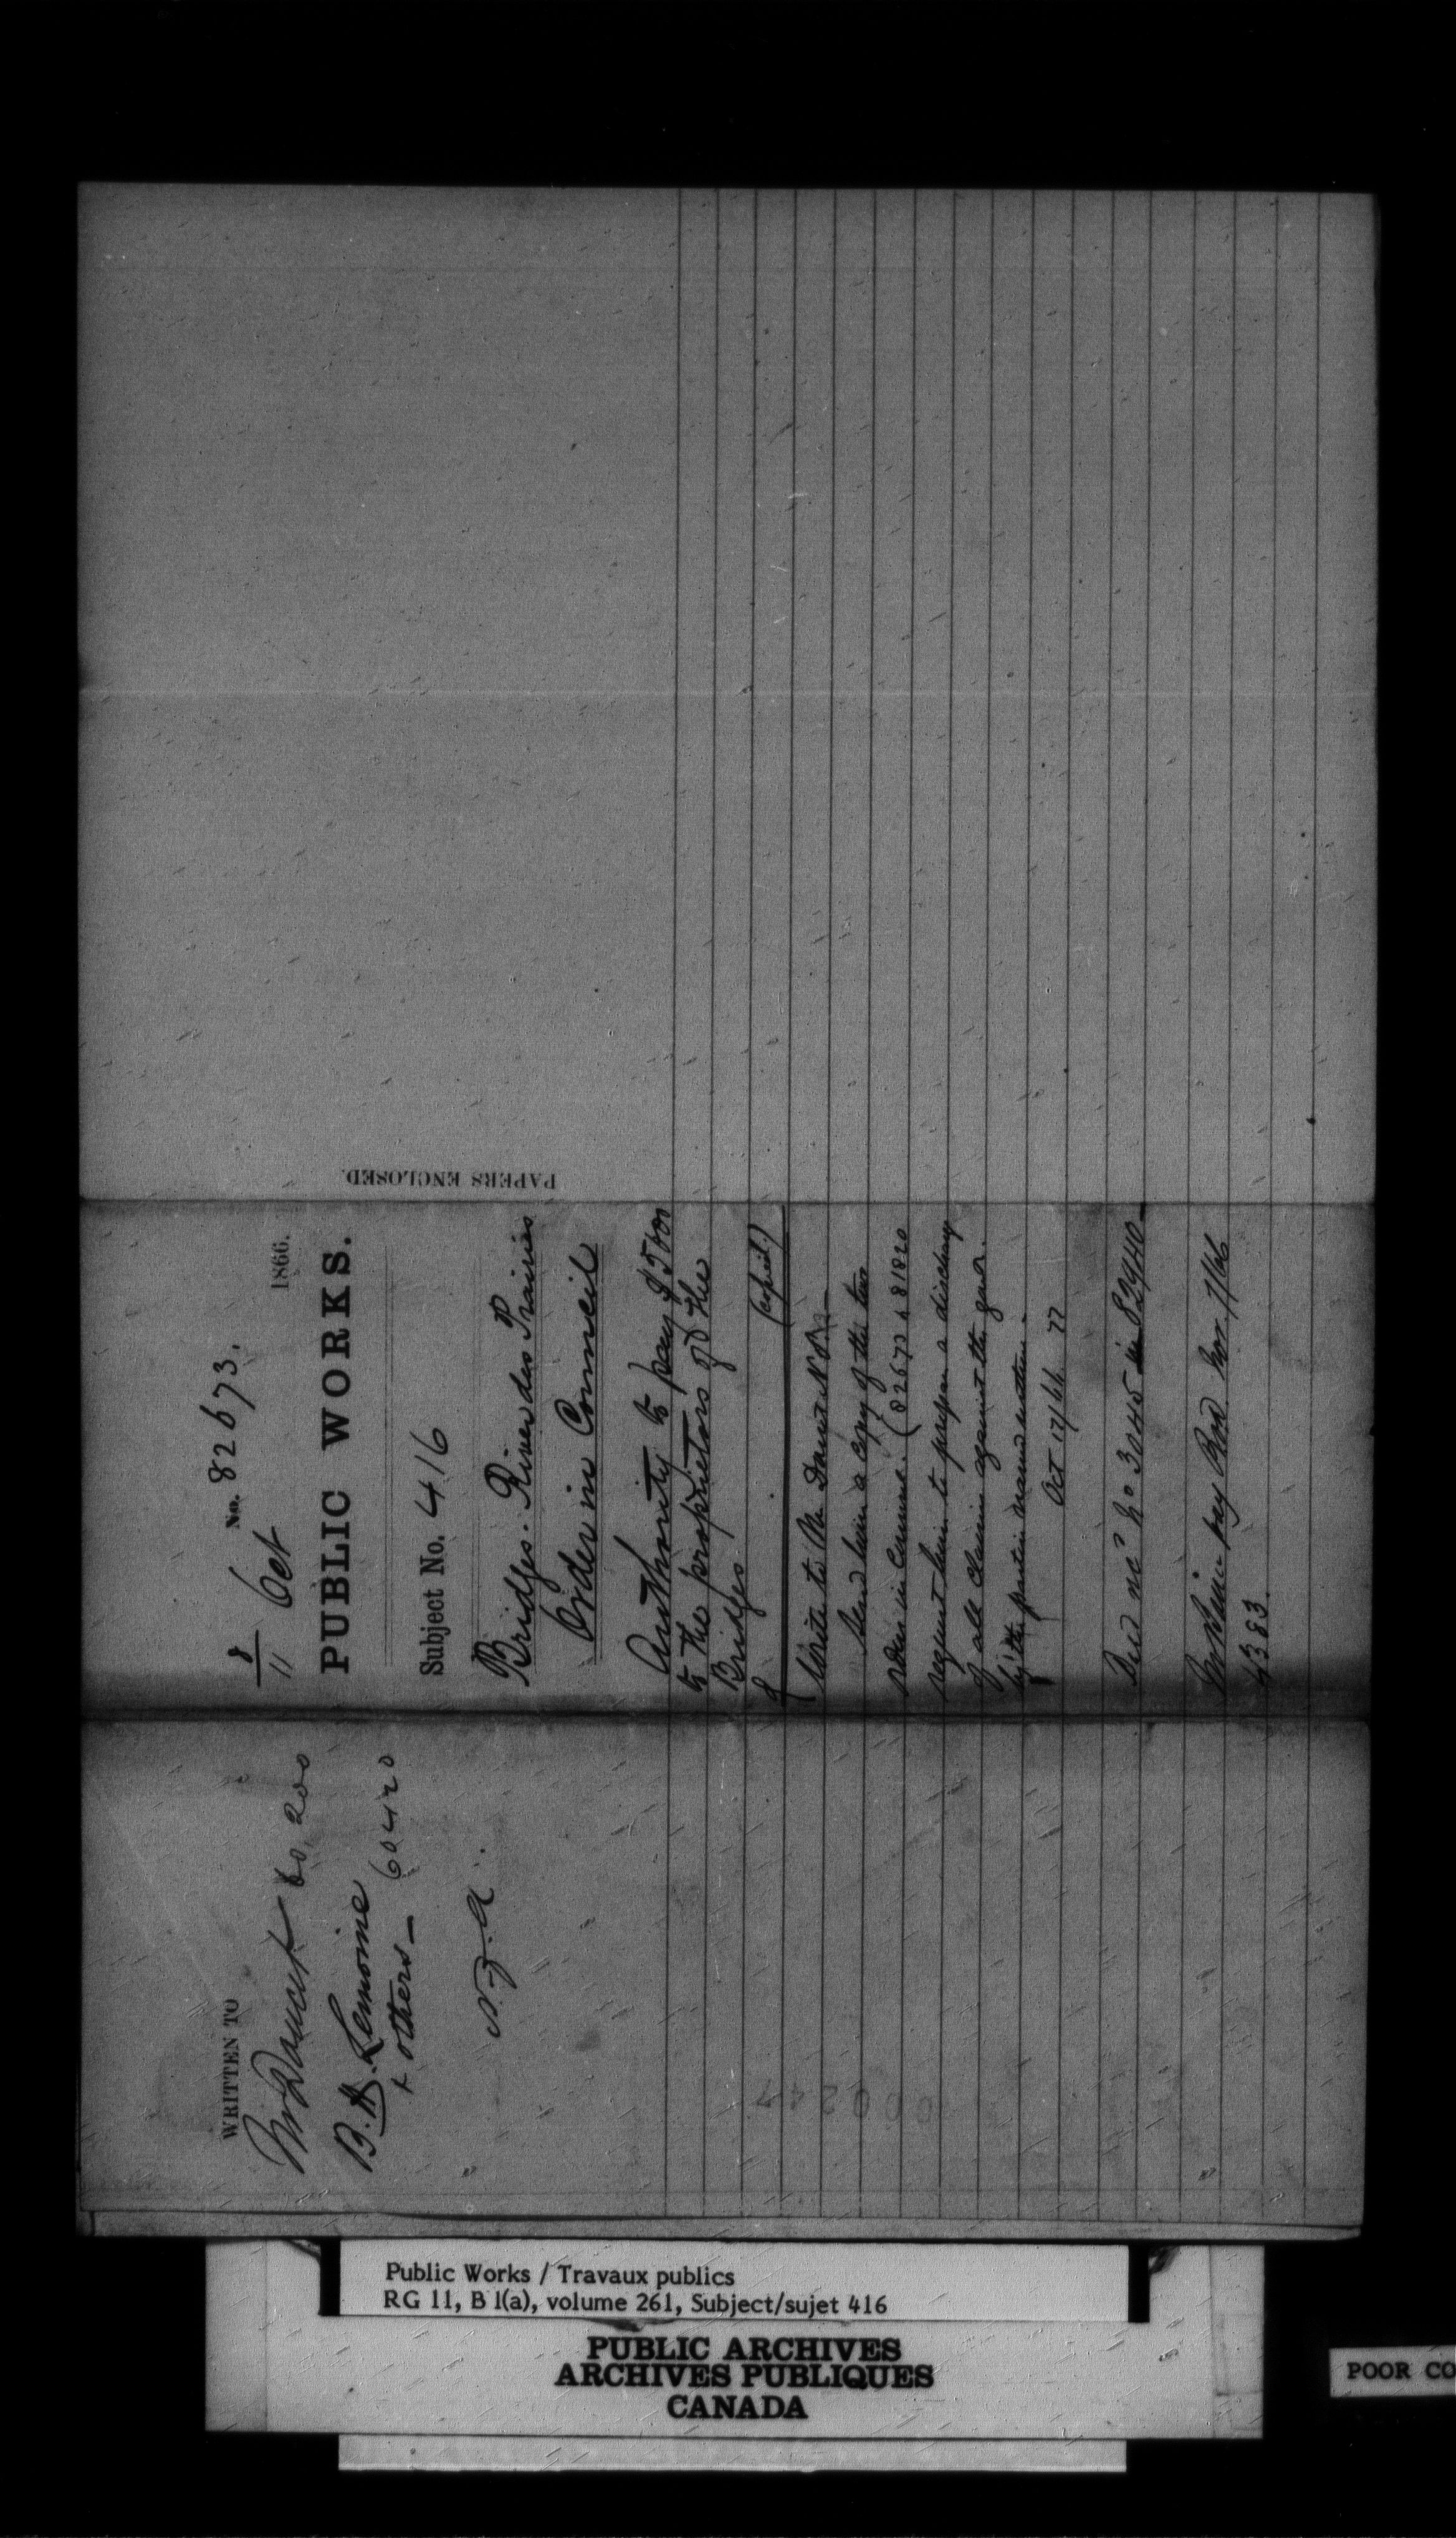 WRITTEN TO
Mr Doucet 60,200
B. H. Lemoine
+ others — 60420
No. 82673.
8/11 Oct 1866.
PUBLIC WORKS.
Subject No. 416
Bridges. River des Prairies
Order in Council
Authority to pay $5000
to the proprietors of the
Bridges
(copied.)
Write to Mr Doucet N.P. —
Send him a copy of the two
orders in Council. (82673 & 81820
request him to prepare a discharge
of all claims against the govt.
by the parties named within —
Oct 17/66
No 3045 in 82940 —
pay Nov. 7/66
4383.
PAPERS ENCLOSED.
000247
Public Works / Travaux publics
RG 11, B 1(a), volume 261, Subject/sujet 416
PUBLIC ARCHIVES
ARCHIVES PUBLIQUES
CANADA
POOR CO